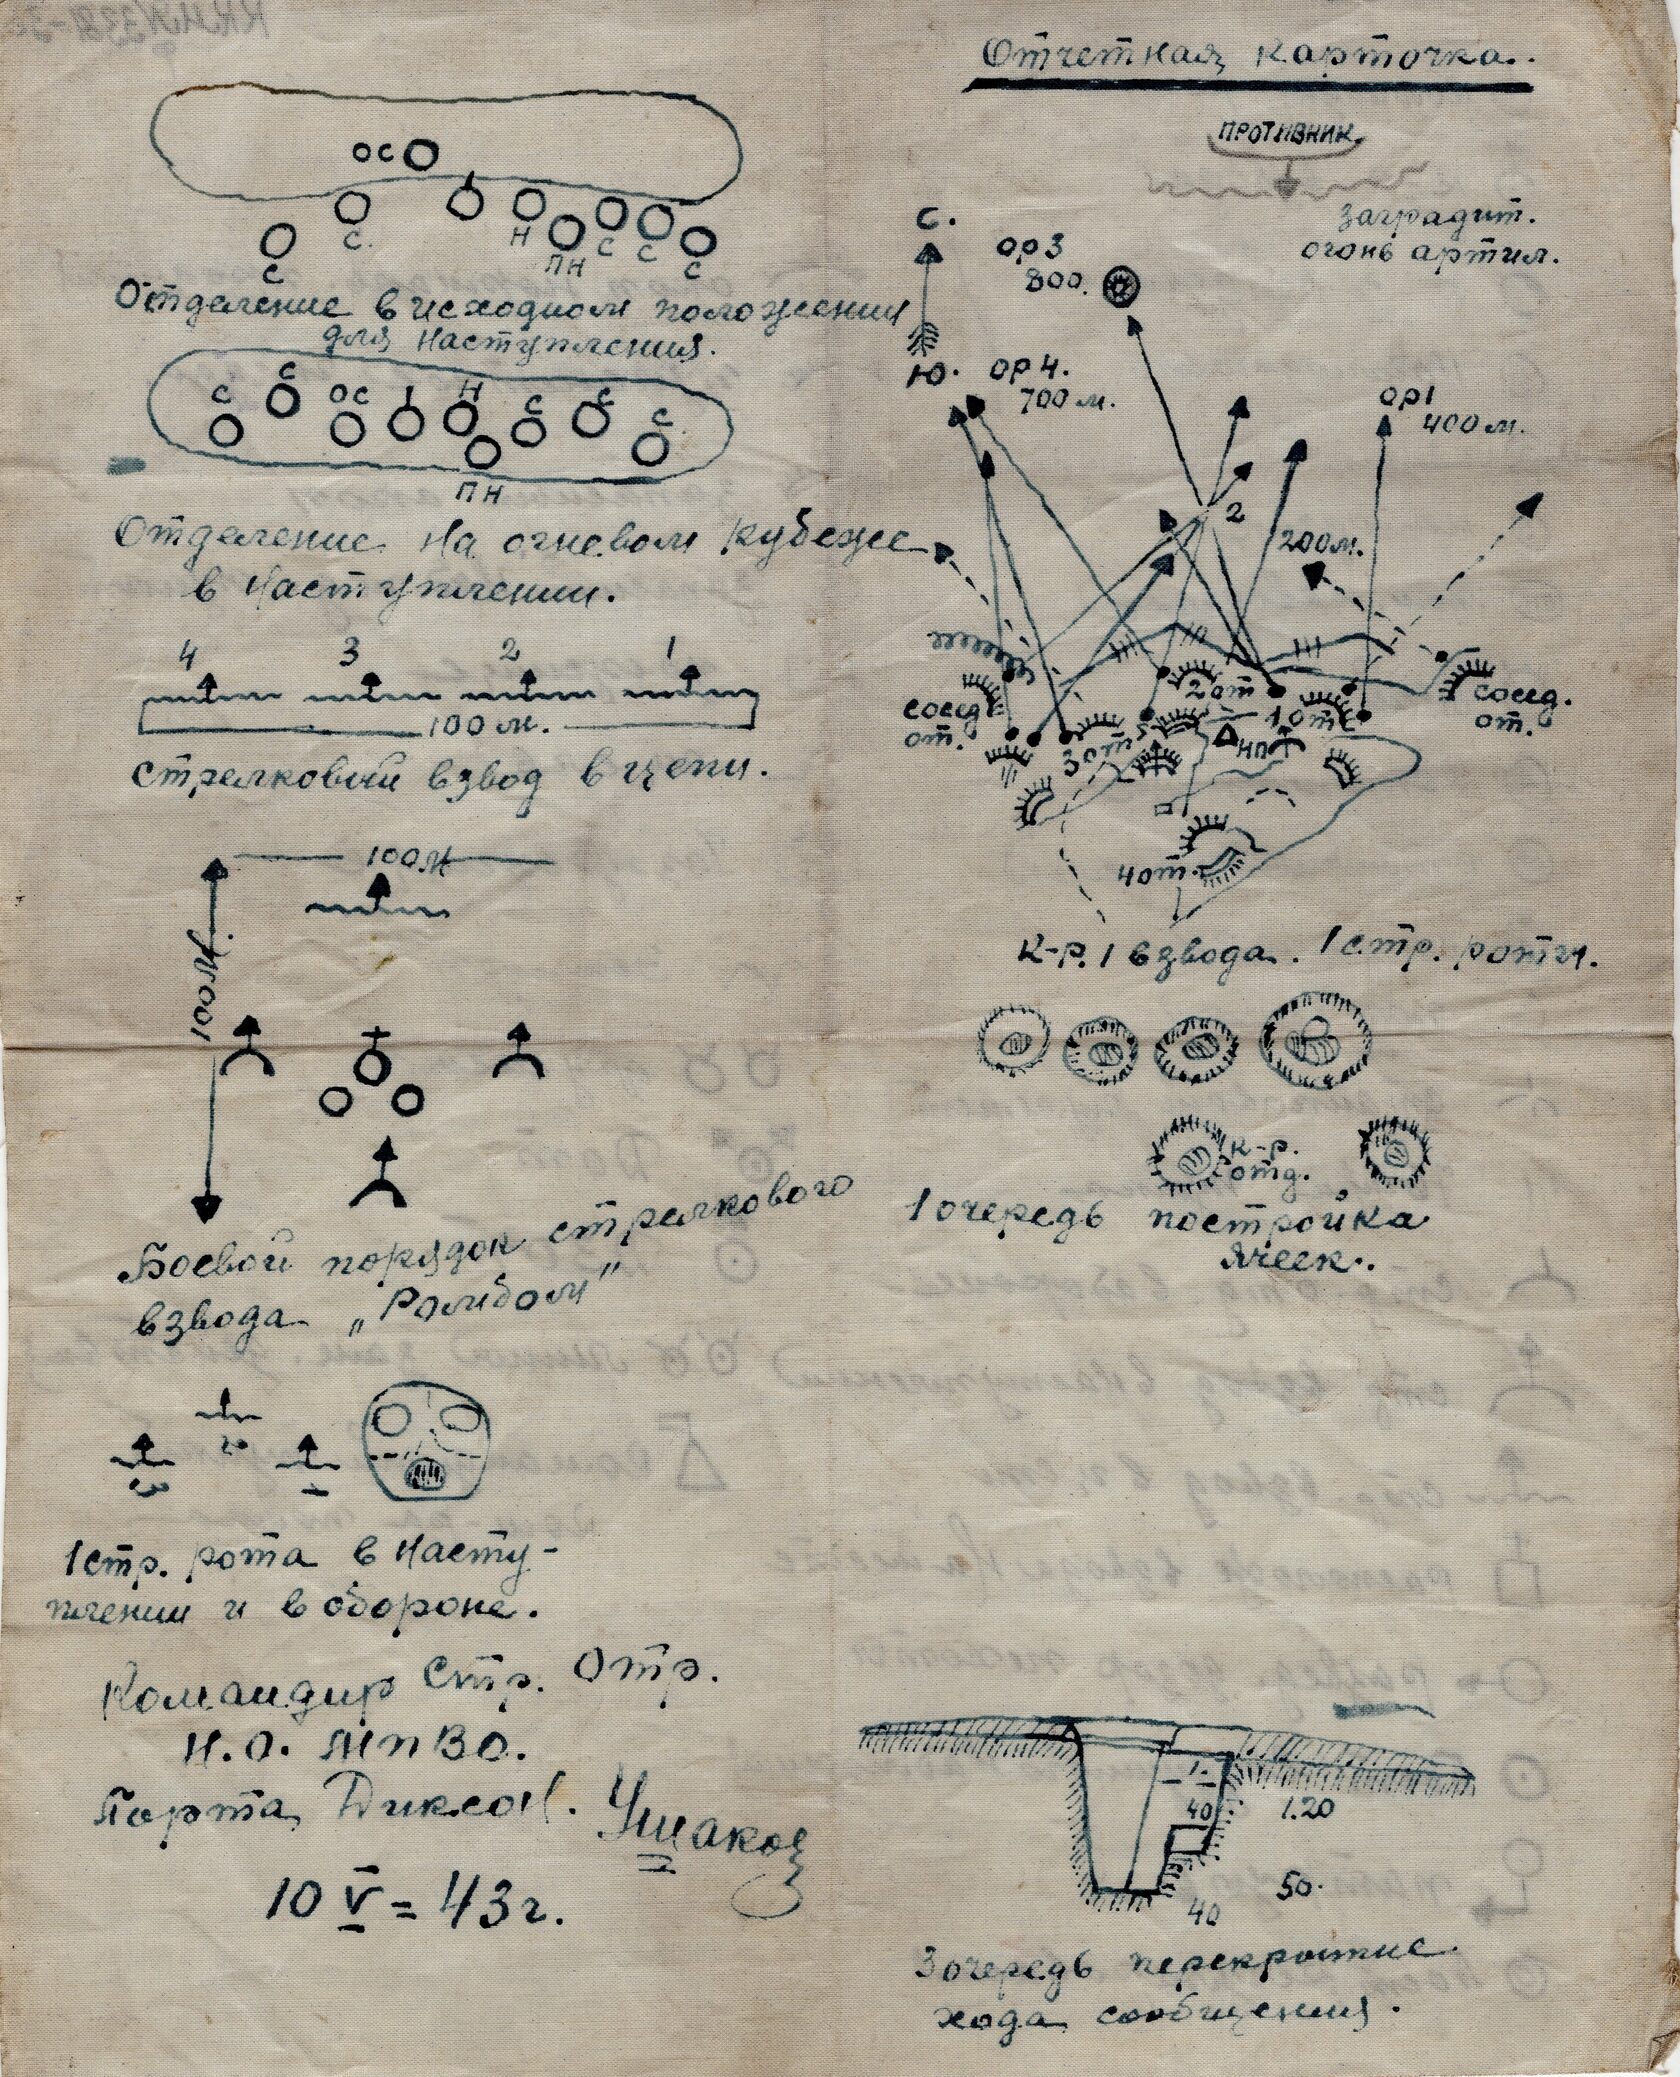 ОС
С
С.
Н
ПН
С
С
С
Отделение в исходном положении
для наступления.
С
С
ОС
Н
С
С
С
ПН
Отделение на огневом рубеже
в наступлении.
4 3 2 1
100 м.
Стрелковый взвод в цепи.
100 м
100 м.
Боевой порядок стрелкового
взвода „Ромбом"
2
3
1
1 стр. рота в насту-
плении и в обороне.
Командир Стр. Отр.
Н.О. МПВО.
Порта Диксон. Ушаков
10 V = 43 г.
Отчетная карточка..
ПРОТИВНИК.
заградит.
огонь артил.
С.
ор 3
800.
Ю.
ор 4.
700 м.
ор 1
400 м.
2
200 м.
сосед
от.
2 от
1 от
сосед.
от.
3 от
НП
4 от.
К-р. 1 взвода. 1 стр. роты.
К-р.
отд.
1 очередь постройка
ячеек.
1.
40
1.20
50.
40
3 очередь перекрытие
хода сообщения.